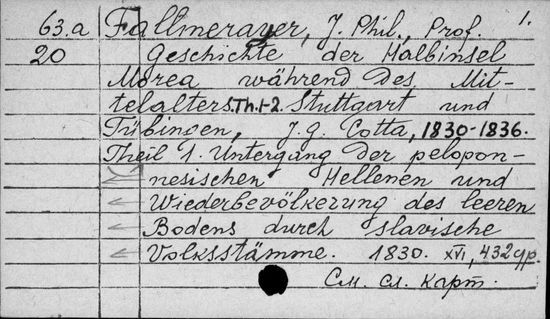 1.
63.a Fallmerayer, J. Phil., Prof.
20 Geschichte der Halbinsel
Morea während des Mit-
telalters. Th.1-2. Stuttgart und
Tübingen, J.G. Cotta, 1830-1836.
Theil 1. Untergang der pelopon-
nesischen Hellenen und
Wiederbevölkerung des leeren
Bodens durch slavische
Volksstämme. 1830. XVI, 432
См. сл. карт.